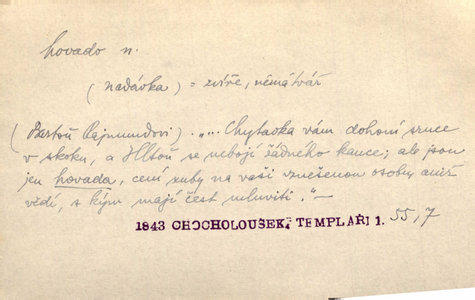 hovado n.
(nadávka) = zvíře, němá tvář
(Bartoň Rajmundovi). „... Chytavka vám dohoní srnce
v skoku, a Hltoň se nebojí žádného kance; ale jsou
jen hovada, cení zuby na vaši vznešenou osobu aniž
vědí, s kým mají čest mluviti."—
1843 CHOCHOLOUŠEK, TEMPLÁŘI 1. 55,7